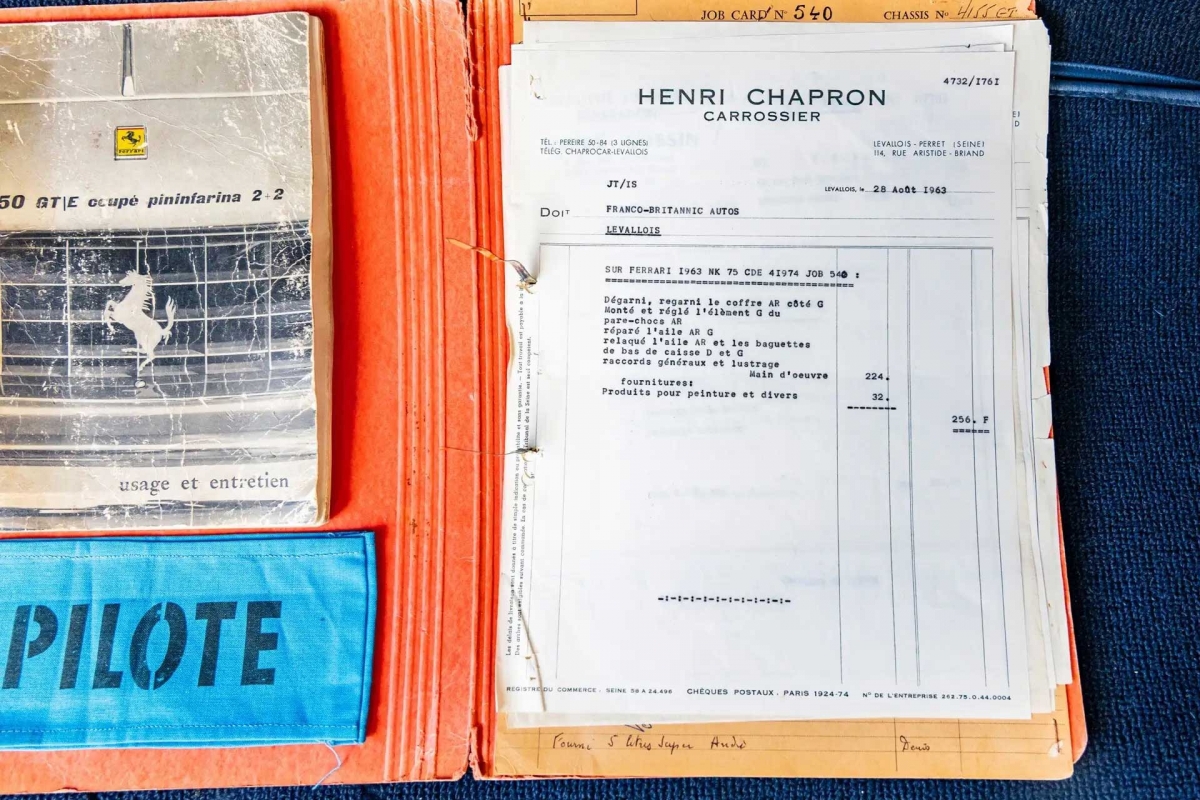 50 GT|E coupé pininfarina 2+2
usage et entretien
PILOTE
JOB CARD Nº 540 CHASSIS Nº 4155 GT
4732/I76I
HENRI CHAPRON
CARROSSIER
TÉL. : PEREIRE 50-84 (3 LIGNES)
TÉLÉG. CHAPROCAR-LEVALLOIS
LEVALLOIS-PERRET (SEINE)
114, RUE ARISTIDE-BRIAND
JT/IS
LEVALLOIS, le 28 Août I963
DOIT FRANCO-BRITANNIC AUTOS
LEVALLOIS
SUR FERRARI I963 NK 75 CDE 4I974 JOB 540 :
Dégarni, regarni le coffre AR côté G
Monté et réglé l'élèment G du
pare-chocs AR
réparé l'aile AR G
relaqué l'aile AR et les baguettes
de bas de caisse D et G
raccords généraux et lustrage
Main d'oeuvre 224.
fournitures:
Produits pour peinture et divers 32.
256. F
REGISTRE DU COMMERCE - SEINE 58 A 24.496 CHÈQUES POSTAUX - PARIS 1924-74 Nº DE L'ENTREPRISE 262.75.0.44.0004
Fourni 5 litres super André Denis